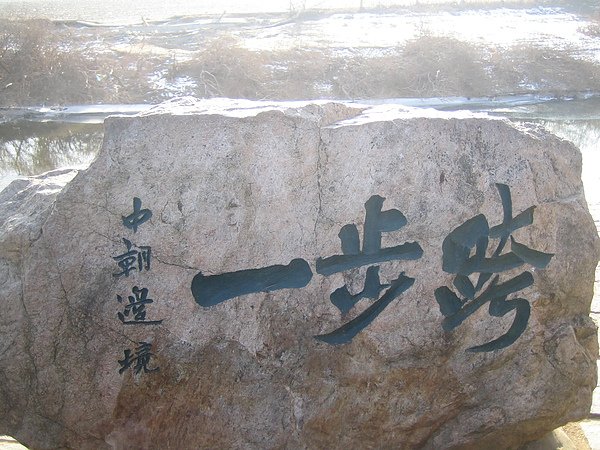 一步跨
中朝邊境